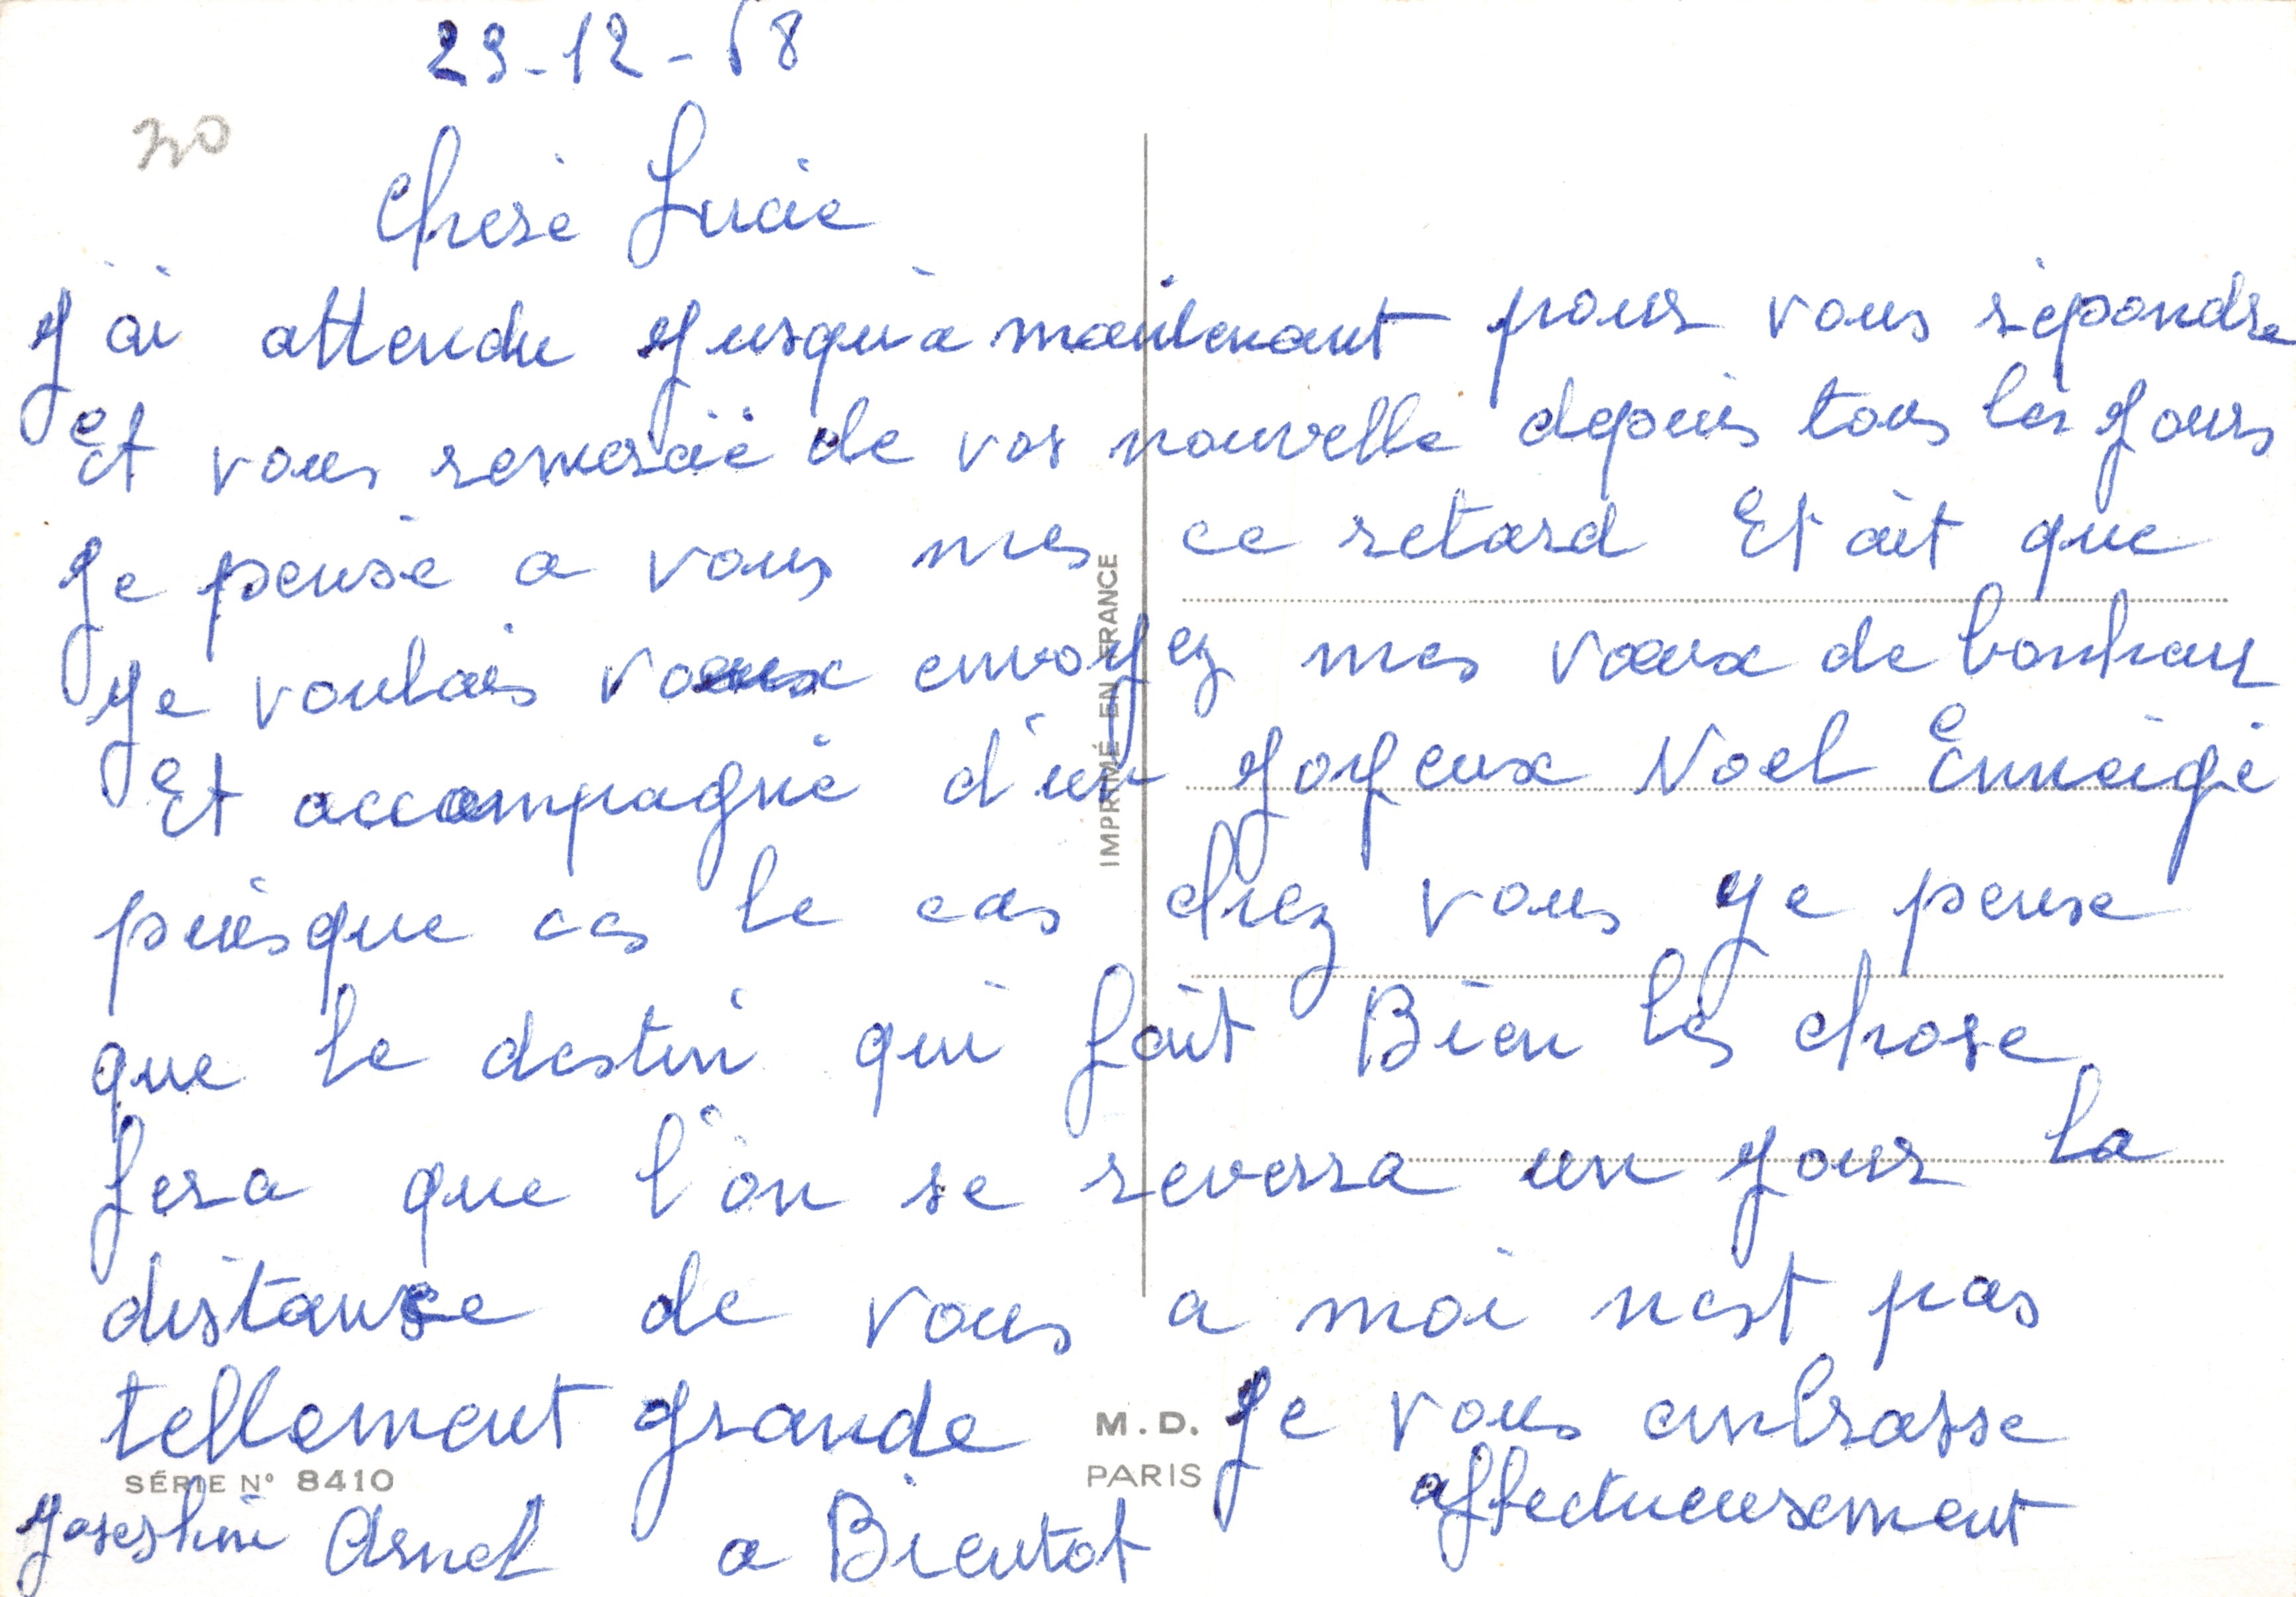 29-12-68
30
Cherie Lucie
J'ai attendu Jusqu'a maintenant pour vous repondre
Et vous remercie de vos nouvelle depuis tous les Jours
Je pense a vous mes ce retard Et ait que
Je voulais vous envoyez mes vœux de bonheur
Et accompagné d'un Joyeux Noel Enneigé
puisque ces le cas chez vous Je pense
que le destin qui fait Bien les chose
fera que l'on se reverra un Jour la
distance de vous a moi nest pas
tellement grande Je vous embrasse
affectueusement
a Bientot
IMPRIMÉ EN FRANCE
M.D.
PARIS
SÉRIE N° 8410